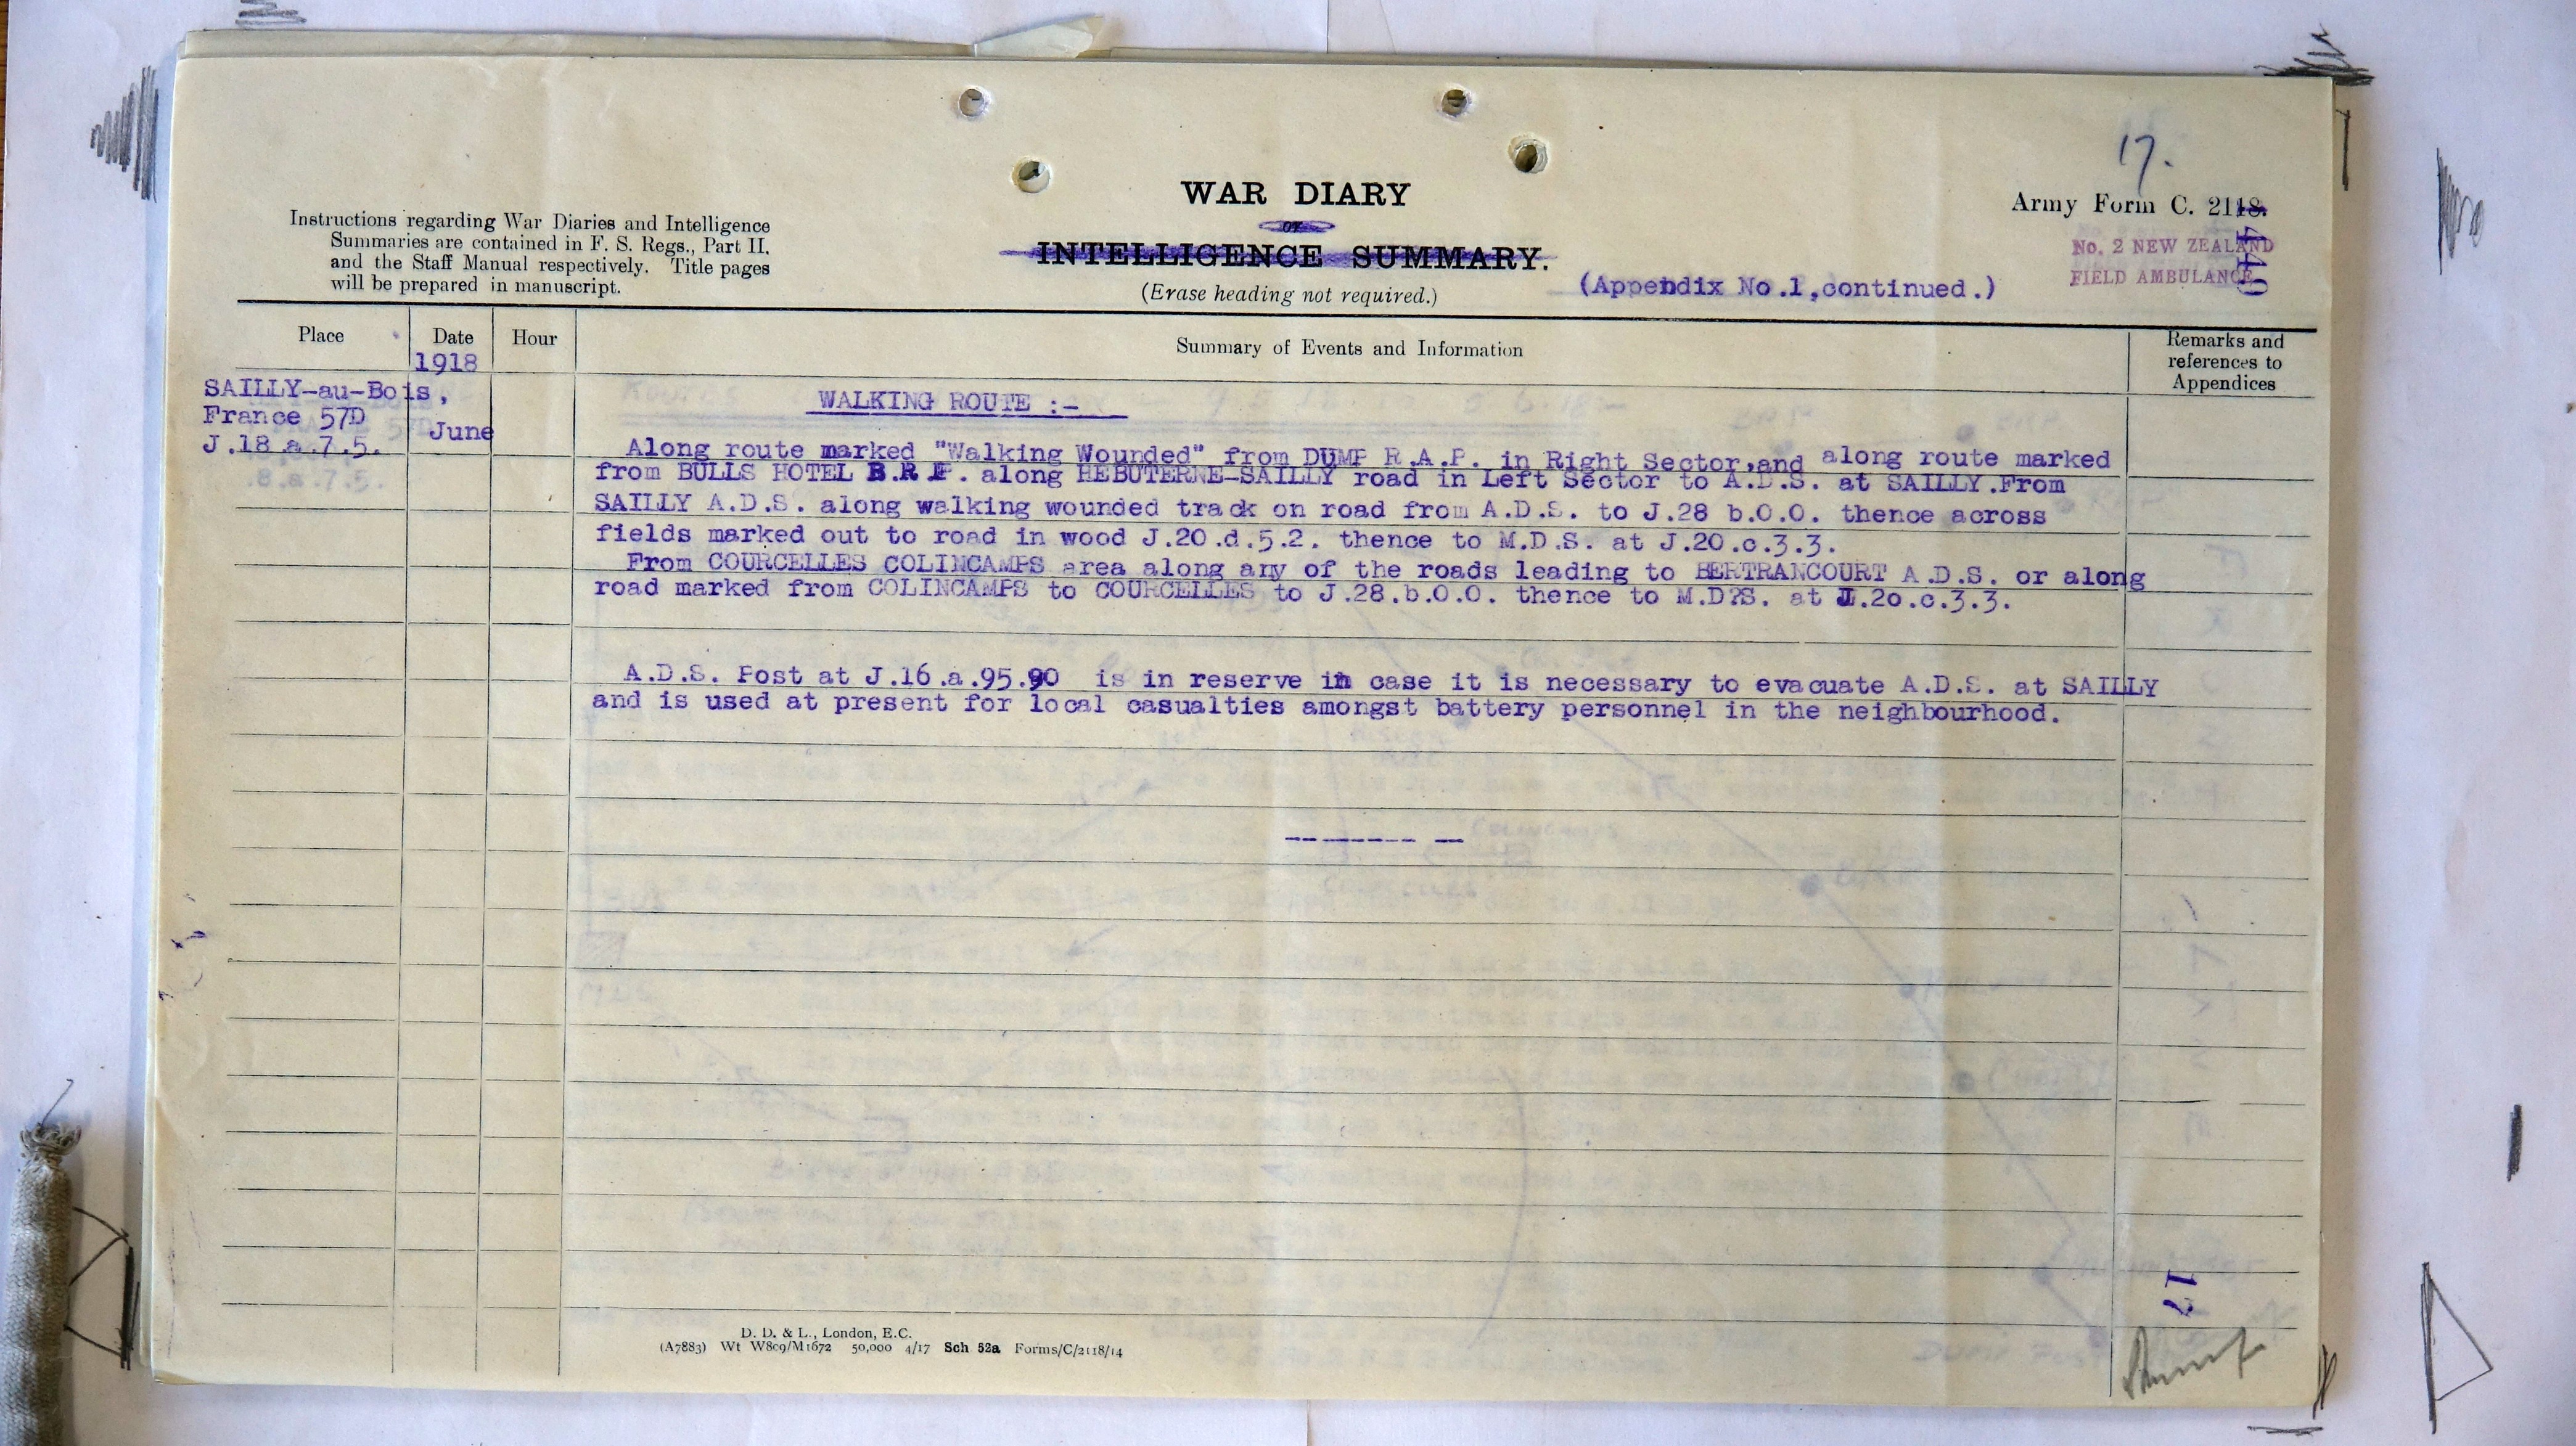 17.
Instructions regarding War Diaries and Intelligence
Summaries are contained in F. S. Regs., Part II.
and the Staff Manual respectively. Title pages
will be prepared in manuscript.
WAR DIARY
or
INTELLIGENCE SUMMARY.
(Erase heading not required.)
(Appendix No.1,continued.)
Army Form C. 2118.
No. 2 NEW ZEALAND
FIELD AMBULANCE
Place
Date
Hour
Summary of Events and Information
Remarks and
references to
Appendices
1918
SAILLY-au-Bois,
France 57D
J.18.a.7.5.
June
WALKING ROUTE :-
Along route marked "Walking Wounded" from DUMP R.A.P. in Right Sector,and along route marked
from BULLS HOTEL B.R.P. along HEBUTERNE-SAILLY road in Left Sector to A.D.S. at SAILLY.From
SAILLY A.D.S. along walking wounded track on road from A.D.S. to J.28 b.0.0. thence across
fields marked out to road in wood J.20.d.5.2. thence to M.D.S. at J.20.c.3.3.
From COURCELLES COLINCAMPS area along any of the roads leading to BERTRANCOURT A.D.S. or along
road marked from COLINCAMPS to COURCELLES to J.28.b.0.0. thence to M.D?S. at J.20.c.3.3.
A.D.S. Post at J.16.a.95.90 is in reserve in case it is necessary to evacuate A.D.S. at SAILLY
and is used at present for local casualties amongst battery personnel in the neighbourhood.
-------- --
17
D. D. & L., London, E.C.
(A7883) Wt W809/M1672 50,000 4/17 Sch 52a Forms/C/2118/14